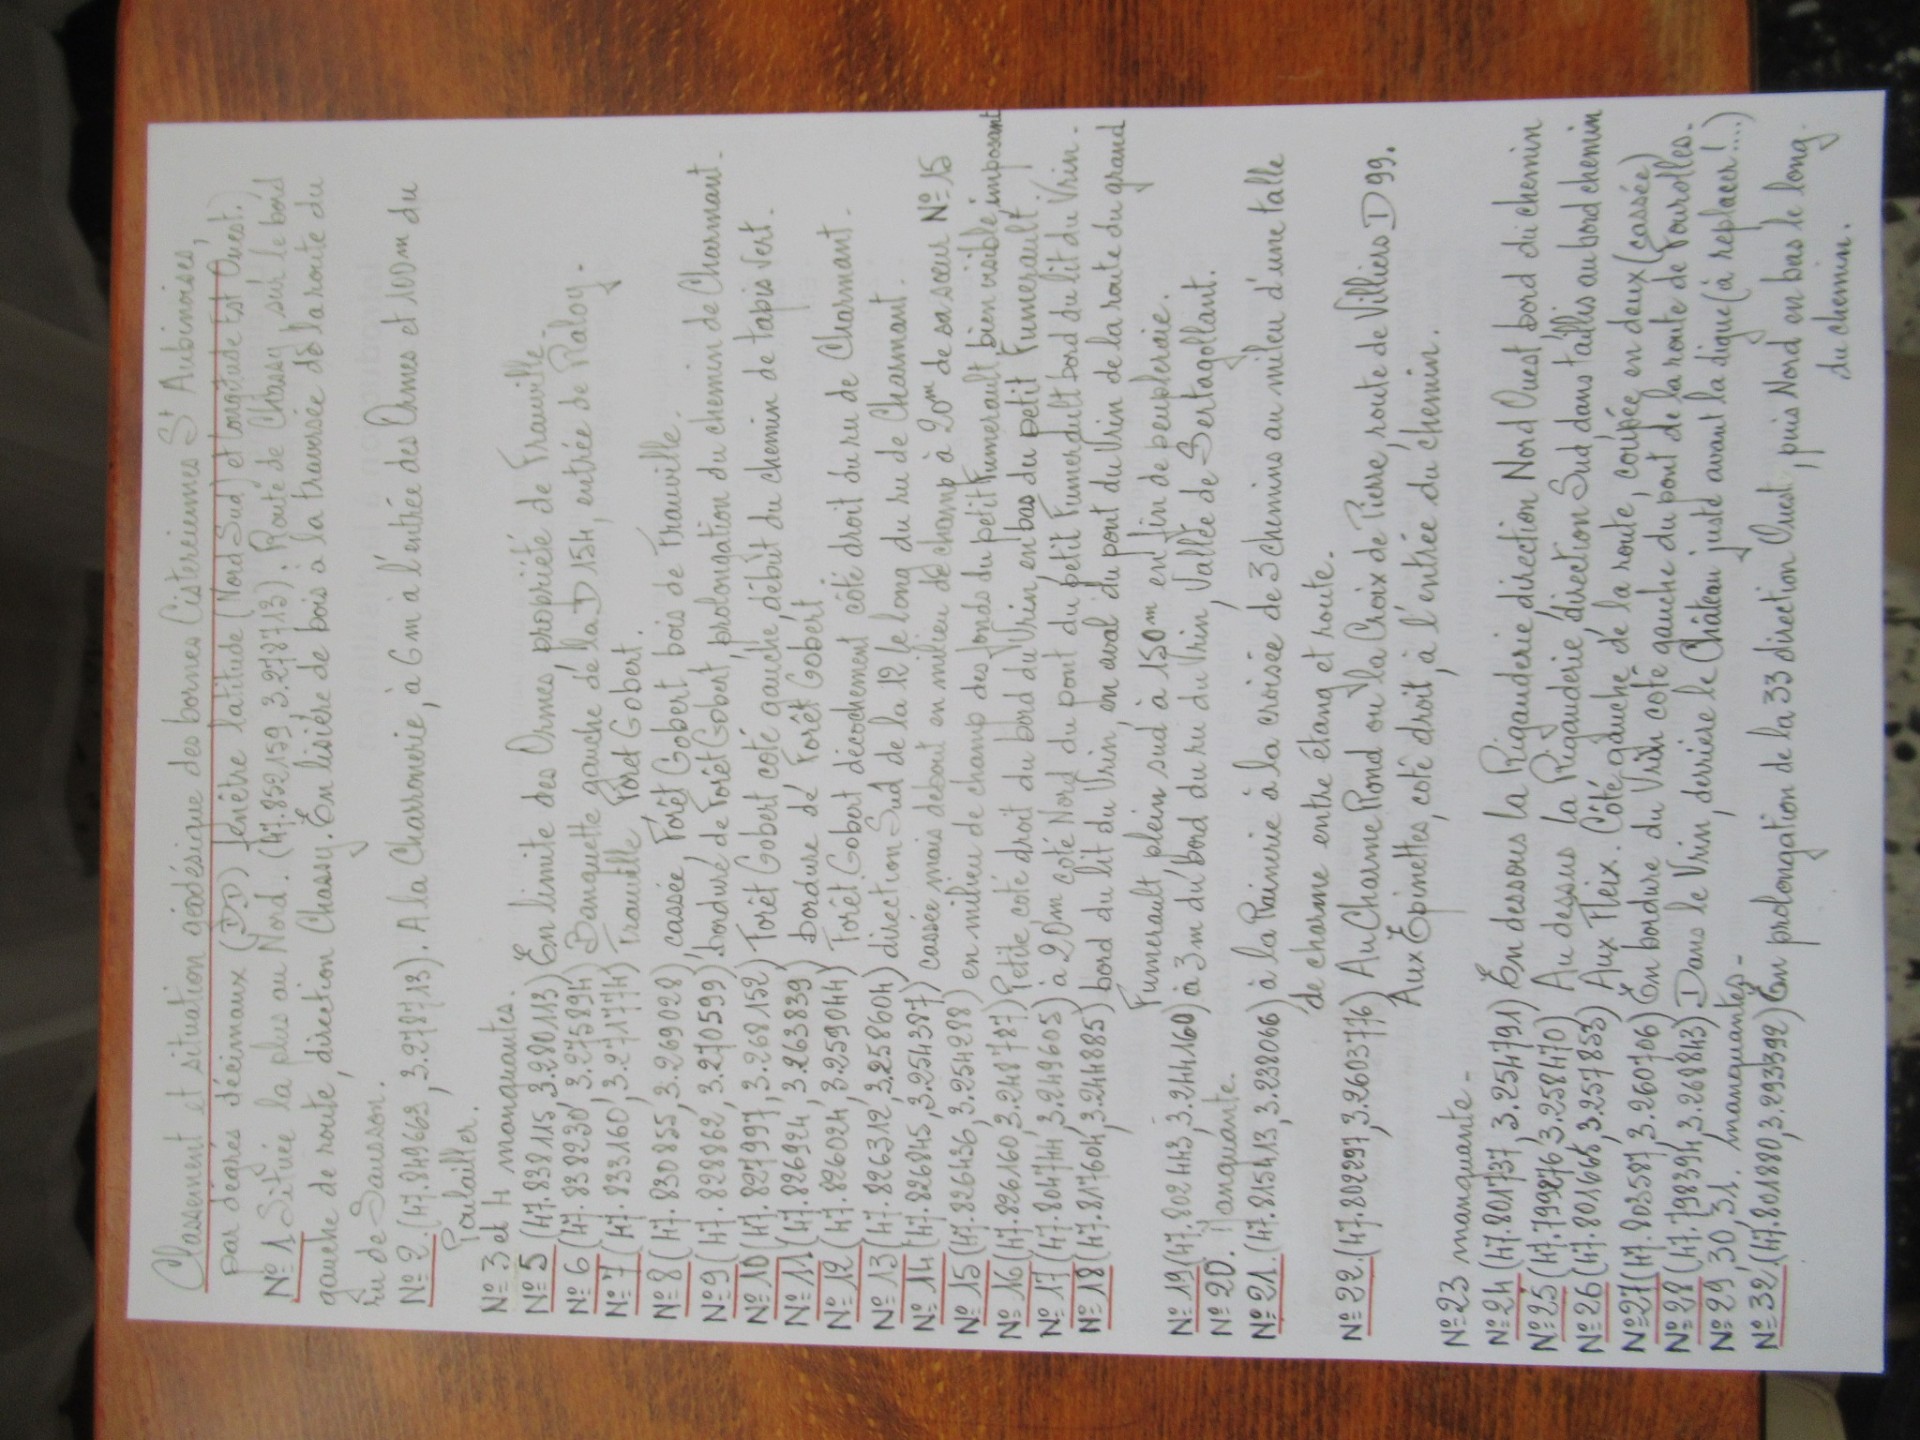 Classement et situation géodésique des bornes Cisterciennes St Aubinoises,
par dégrés décimaux (DD) fenêtre latitude (Nord Sud) et longitude Est Ouest.
N° 1 Située la plus au Nord. (47.852159 3.278713). Route de Chassy sur le bord
gauche de route, direction Chassy. En lisière de bois à la traversée de la route du
ru de Sausson.
N° 2. (47.849663, 3.278713). A la Charronerie, à 6m à l'entrée des Ormes et 100m du
Poulailler.
N° 3 et 4 manquantes.
N° 5 (47.838115, 3.280113) En limite des Ormes, propriété de Frauville.
N° 6 (47.838230, 3.275894) Banquette gauche de la D 154, entrée de Paloy.
N° 7 (47.833160, 3.271774) Frauville Forêt Gobert.
N° 8 (47.830855, 3.269028), cassée, Forêt Gobert bois de Frauville.
N° 9 (47.828862, 3.270599), bordure de Forêt Gobert, prolongation du chemin de Charmant.
N° 10 (47.827997, 3.268152) Forêt Gobert coté gauche, début du chemin de tapis Vert.
N° 11 (47.826924, 3.263839) bordure de Forêt Gobert
N° 12 (47.826024, 3.259044) Forêt Gobert décrochement côté droit du ru de Charmant.
N° 13 (47.826312, 3.258604) direction Sud de la 12 le long du ru de Charmant.
N° 14 (47.826845, 3.254387) cassée mais debout en milieu de champ à 20m de sa sœur N° 15
N° 15 (47.826436, 3.254288) en milieu de champ des fonds du petit Fumerault bien visible, imposant
N° 16 (47.826160 3.248787) Petite coté droit du bord du Vrin, en bas du petit Fumerault.
N° 17 (47.804744, 3.249605) à 20m coté Nord du pont du petit Fumerault bord du lit du Vrin.
N° 18 (47.817604, 3.244885) bord du lit du Vrin, en aval du pont du Vrin de la route du grand
Fumerault plein sud à 150m en fin de peupleraie.
N° 19 (47.802443, 3.244160) à 3m du bord du ru du Vrin, Vallée de Sertagollant.
N° 20. Manquante.
N° 21. (47.815413, 3.238066) à la Rainerie à la croisée de 3 chemins au milieu d'une talle
de charme entre étang et route.
N° 22. (47.802297, 3.2603776) Au Charme Rond ou la Croix de Pierre, route de Villiers D 99.
Aux Épinettes, coté droit, à l'entrée du chemin.
N° 23 manquante -
N° 24 (47.801737, 3.254791) En dessous la Rigauderie direction Nord Ouest bord du chemin
N° 25 (47.799276 3.258470) Au dessus la Rigauderie, direction Sud dans taillis au bord chemin
N° 26 (47.801668, 3.257853) Aux Fleix. Côté gauche de la route, coupée en deux (cassée)
N° 27 (47.803587, 3.260706) En bordure du Vrin coté gauche du pont de la route de Fourolles.
N° 28 (47.798394 3.268843). Dans le Vrin, derriere le Château juste avant la digue (à replacer!...)
N° 29, 30, 31. manquantes -
N° 32. (47.801880, 3.293392) En prolongation de la 33 direction Ouest, puis Nord en bas le long
du chemin.